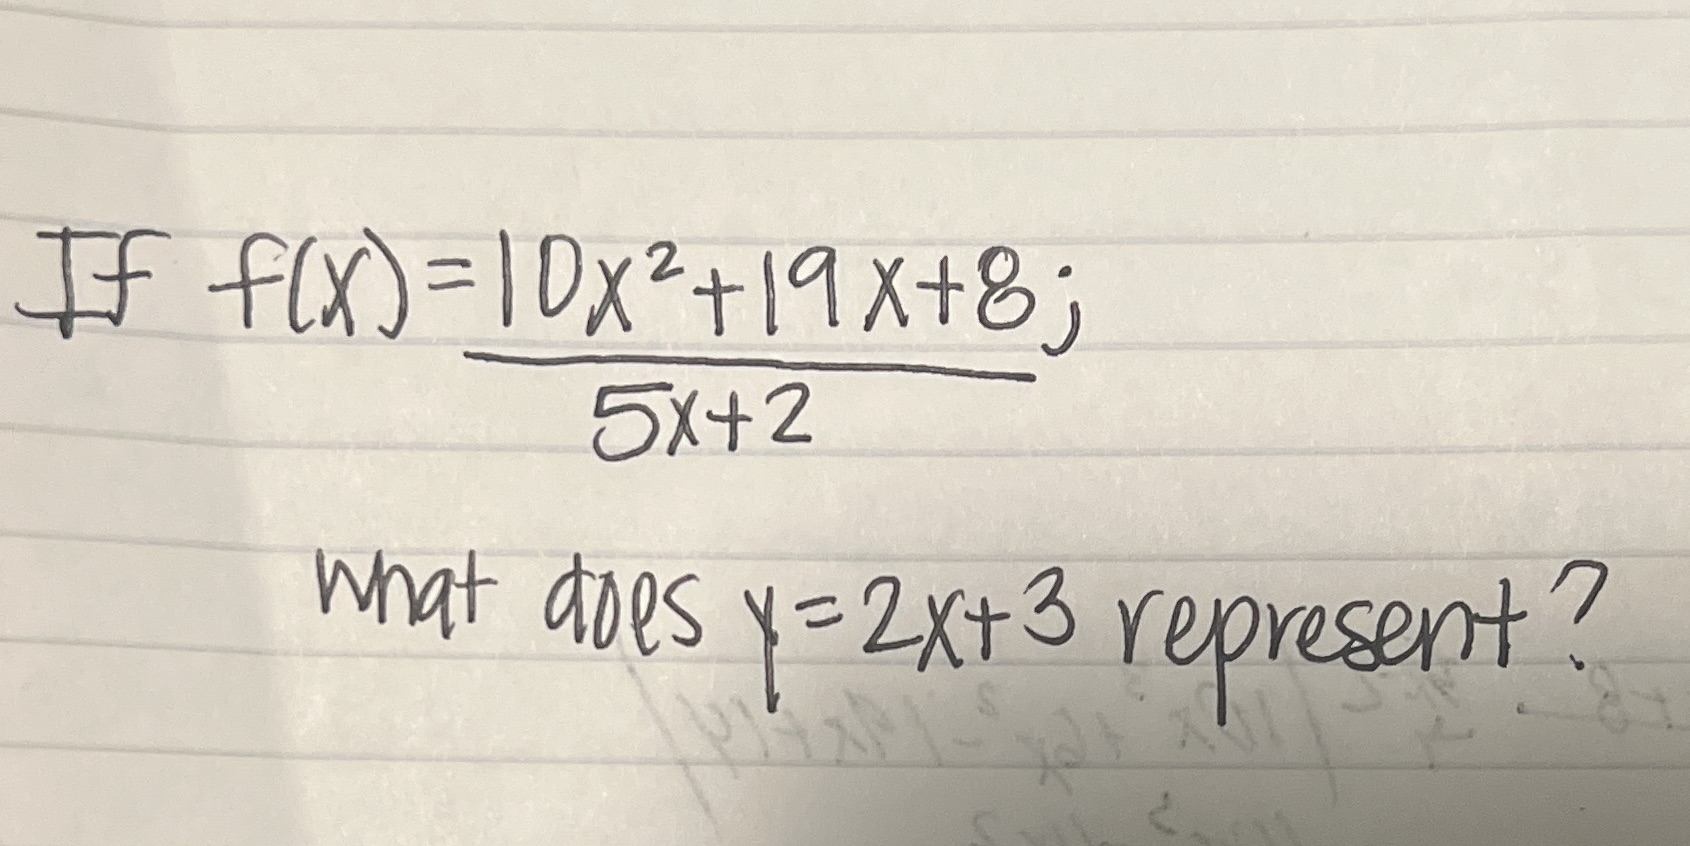 If f(x) = 10x² + 19x + 8;
5x + 2
what does y = 2x + 3 represent?